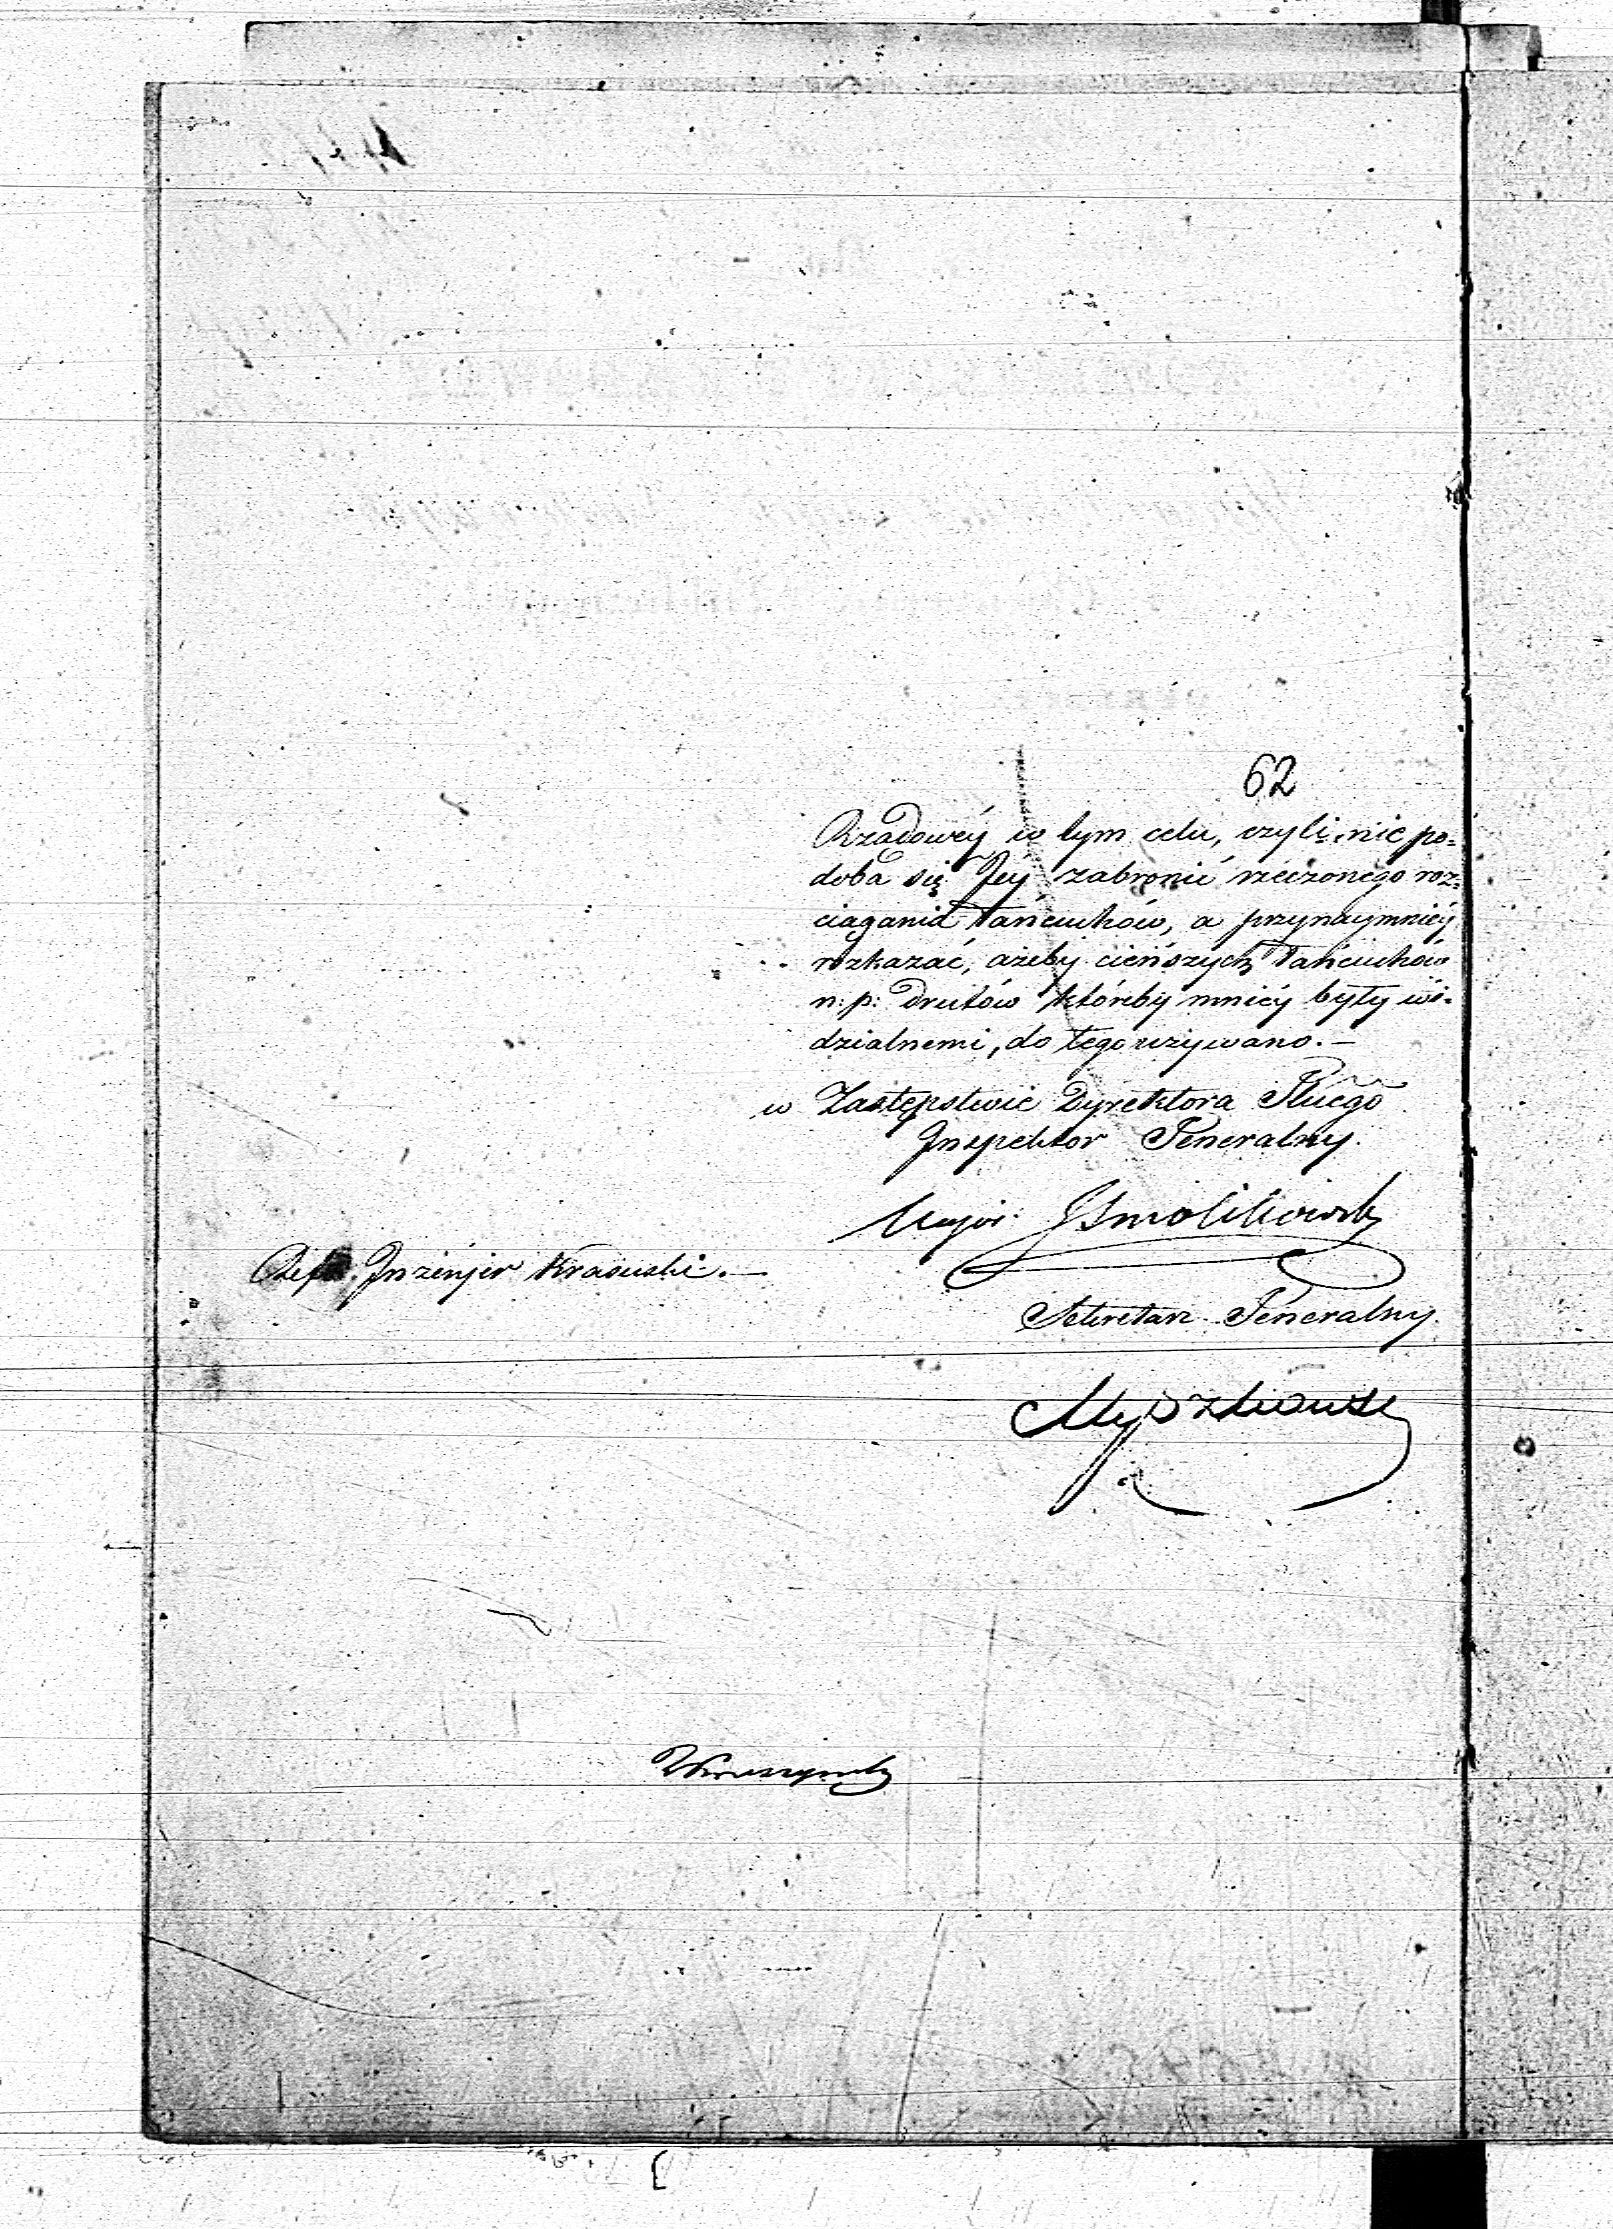 62
Rządowéy w tym celu, czyli nie po=
doba się Jéy zabronić rzeczonego roz=
ciągania łańcuchów, a przynaymniéy
rozkazać, ażeby cieńszych łańcuchów
n: p: drutów któreby mniéy były wi=
dzialnemi, do tego używano. —
w Zastępstwie Dyrektora Głłgo
Inspektor Generalny.
Major Smolikowski
Refer. Inżenjer Krasuski. —
Sekretarz Generalny.